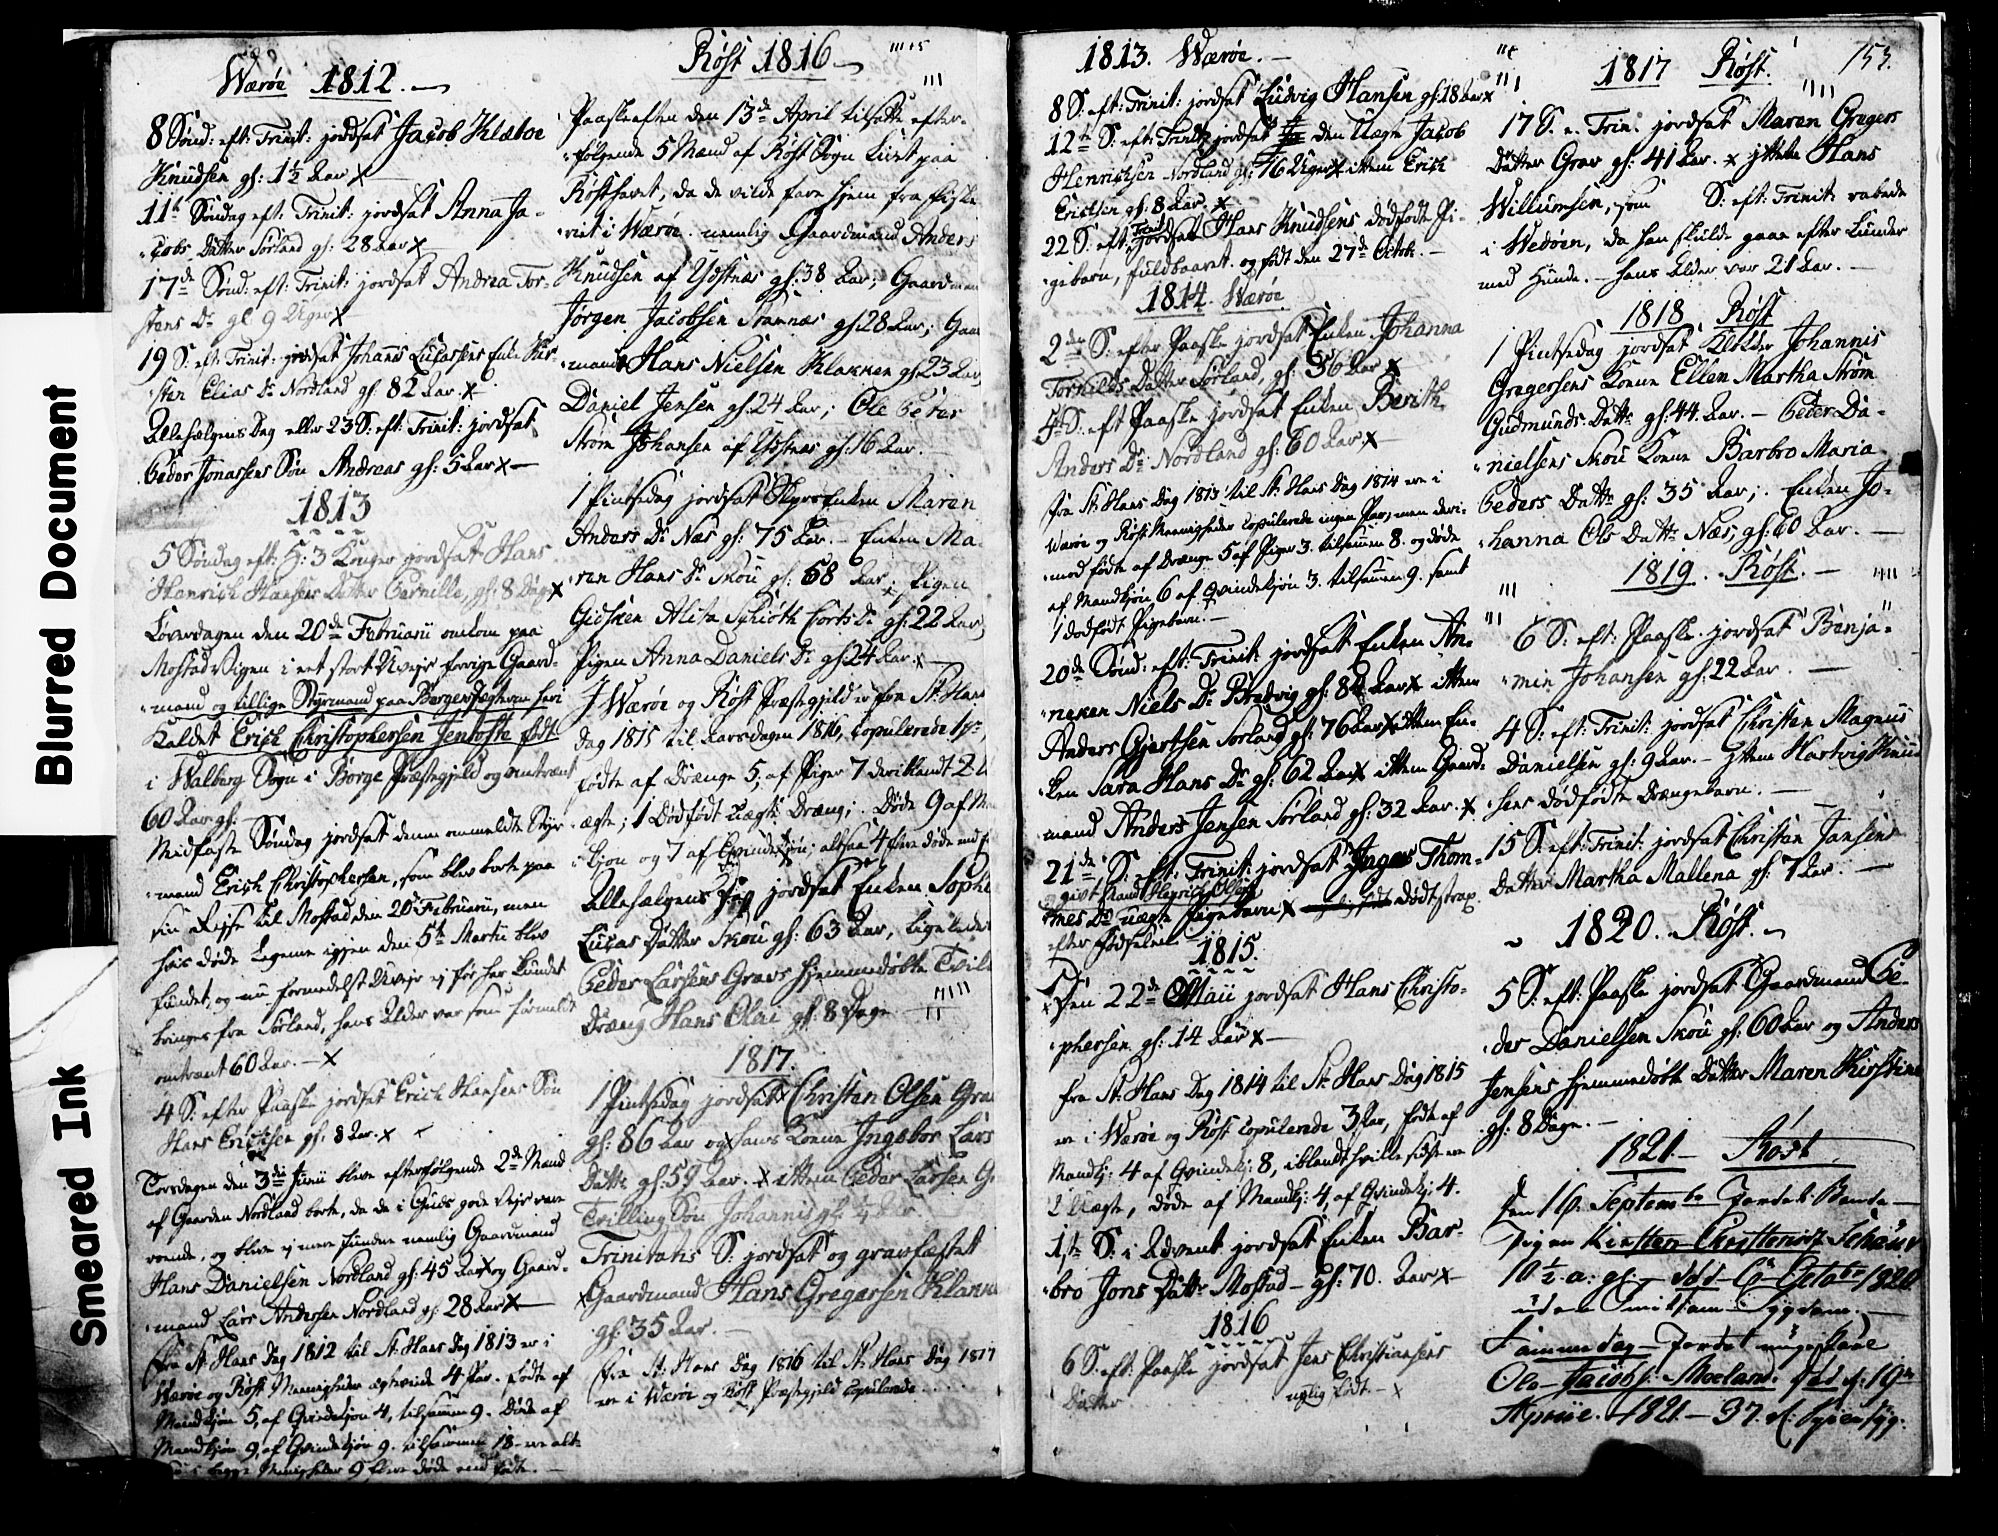 Blurred Document
Smeared Ink
Wærøe 1812.
8 Sønd: eft: Trinit: jordsat Jacob Klæboe
Knudsen gl: 1½ Aar x
11te Søndag eft: Trinit: jordsat Anna Ja-
cobs Datter Sørland gl: 28 Aar x
17de Sønd: eft: Trinit: jordsat Andrea Tor-
stens Dr gl. 9 Uger x
19 S: eft: Trinit: jordsat Johannes Lucassens Enke Kir-
sten Elias Dr Nordland gl: 82 Aar. x
Allehelgens Dag eller 23 S: eft: Trinit: jordsat
Peder Jonassens Søn Andreas gl: 5 Aar x
1813
5 Søndag eft: H: 3 Konger jordsat Hans
Henrich Hansens Datter Pernille, gl: 8 Dage x
Løverdagen den 20de Februarii omkom paa
Mostad Vigen i et stort Uvejr forrige Gaard-
mand og tillige Styrmand paa Borgerjægten
Kaldet Erich Christophersen Jentofte født
i Walberg Sogn i Borge Præstegjeld og omtrent
60 Aar gl:
Midfaste Søndag jordsat denne ommeldte Styr-
mand Erich Christophersen, som blev borte paa
sin Rejse til Mostad den 20de Februarii, men
hvis døde Legeme igjen den 5te Martii blev
fundet, og nu formedelst Uvejr ej før har kundet
bringes fra Sørland, hans Alder var som formeldt
omtrent 60 Aar. — x
4 S: efter Paaske jordsat Erich Hansens Søn
Hans Erichsen gl: 8 Aar. x
Torsdagen den 3die Junii bleve efterfølgende 2de Mænd
af Gaarden Nordland borte, da de i Guds gode Vejr vare
roende, og bleve ej mere fundne nemlig Gaardmand
Hans Danielsen Nordland gl: 45 Aar x og Gaard-
mand Lars Andersen Nordland gl: 28 Aar x
Fra St: Hans Dag 1812 til St: Hans Dag 1813 er i
Wærøe og Røst Menigheder ægteviede 4 Par. fødte af
Mandkjøn 5, af Qvindekjøn 4, tilsammen 9. Døde af
Mandkjøn 9, af Qvindekjøn 9. tilsammen 18 — er alt-
begge Menigheder 9 flere døde end fødte. —
Røst 1816
Paaskeaften den 13de April tilsatte efter-
følgende 5 Mænd af Røst Sogn Livet paa
Røsthavet, da de vilde fare hjem fra Fiske-
riet i Wærøe. nemlig Gaardmand Anders
Knudsen af Ystnes gl: 38 Aar; Gaardman
Jørgen Jacobsen Stavnæs gl: 28 Aar; Gaar
mand Hans Nielsen Klakken gl: 23 Aar,
Daniel Jensen gl: 24 Aar; Ole Peder
Strøm Johansen af Ystnes gl: 16 Aar.
1 Pintsedag jordsat Enken Maren
Anders Dr Næs gl: 75 Aar. — Enken Ma-
ren Hans Dr Skou gl: 68 Aar; Pigen
Gidsken Alita Schiøth Horts Dr gl: 22 Aar,
Pigen Anna Daniels Dr gl: 24 Aar. x
I Wærøe og Røst Præstegjeld er fra St: Hans
Dag 1815 til Aarsdagen 1816, copulerede 1 Par,
fødte af Drænge 5, af Piger 7 deriblandt 2
ægte; 1 Dødfødt uægte Dræng; Døde 9 af M
kjøn og 7 af Qvindekjøn; altsaa 4 flere døde end f
Allehelgens Dag jordsat Enken Sophi
Lucas Datter Skou gl: 63 Aar, ligeledes
Peder Larsens Graves hjemmedøbte Tvill
Dræng Hans Olai gl: 8 Dage
1817.
1 Pintsedag jordsat x Christen Olsen Gra
gl: 86 Aar og x hans Kone Ingebor Lars
Datt: gl: 59 Aar. — x ittem Peder Larsen G
Tvilling Søn Johannis gl: ¼ Aar.
Trinitatis S: jordsat og gravfæstet
x Gaardmand Hans Gregersen Klakk
gl: 35 Aar.
Fra St: Hans Dag 1816 til St: Hans Dag 1817
ere i Wærøe og Røst Præstegjeld copulerede
1813. Wærøe.
8 S: eft: Trinit: jordsat Ludvig Hansen gl: 18 Aar x
12te S: eft: Trinit: jordsat den Uægte Jacob
Henrichsen Nordland gl: 16 Uger x ittem Erich
Erichsen gl: 8 Aar. x
22 S: eft: Trinit jordsat Hans Knudsens dødfødte Pi-
gebarn, fuldbaaret. og født den 27de Octob: —
1814. Wærøe
2den S: efter Paaske jordsat Enken Johanna
Tornilds Datter Sørland, gl: 56 Aar x
5te S: eft Paaske jordsat Enken Berith
Anders Dr Nordland gl: 60 Aar x
Fra St: Hans Dag 1813 til St: Hans Dag 1814 ere i
Wærøe og Røst Menigheder copulerede ingen Par, men deri-
mod fødte af Drænge 5 af Piger 3. tilsammen 8. og døde
af Mandkjøn 6 af Qvindekjøn 3. tilsammen 9. samt
1 dødfødt Pigebarn. —
20de Sønd: eft: Trinit: jordsat Enken An-
neken Niels Dr Bredvig gl: 82 Aar x ittem
Anders Gjertsen Sørland gl: 76 Aar x ittem En-
ken Sara Hans Dr gl: 62 Aar x ittem Gaard-
mand Anders Jensen Sørland gl: 32 Aar. x
21de S: eft: Trinit: jordsat Inger Thom-
mes Dr uægte Pigebarn x Dødt strax
efter Fødselen
1815.
Den 22de Maii jordsat Hans Christo-
phersen gl: 14 Aar x
Fra St: Hans Dag 1814 til St: Hans Dag 1815
ere i Wærøe og Røst copulerede 3 Par, fødte af
Mandkj: 4 af Qvindekj: 8, iblandt hvilke sidste ere
2 uægte, døde af Mandkj: 4, af Qvindekj: 4.
1ste S: i Advent jordsat Enken Bar-
bro Jons Datt: Mostad — gl: 70. Aar x
1816
6 S: eft: Paaske jordsat Jens Christiansens
Datter nylig født. — x
1817 Røst. 153.
17 S. e. Trin. jordsat Maren Gregers
Datter Grav gl: 41 Aar. x ittem Hans
Willumsen, som S: eft: Trinit: rabede
i Vedøen, da han skulde gaae efter Lunder
med Hunde. — hans Alder var 21 Aar. —
1818 Røst
1 Pintsedag jordsat Klokker Johannis
Gregersens Kone Ellen Martha Strøm
Gudmunds Datt: gl: 44. Aar. — Peder Da-
nielsens Skou Kone Barbro Maria
Peders Datt: gl: 35 Aar; Enken Jo-
hanna Ols Datt: Næs, gl: 60 Aar. —
1819. Røst. —
6 S: eft: Paaske jordsat Benja-
min Johansen gl: 22 Aar. —
4 S: eft: Trinit: jordsat Christen Magnus
Danielsen gl: 9 Aar. — ittem Hartvig Knud-
sens dødfødte Drængebarn. —
15 S: eft: Trinit: jordsat Christen Jansens
Datter Martha Mallena gl: 7 Aar. —
1820. Røst.
5 S: eft: Paaske jordsat Gaardmand Pe-
der Danielsen Skou gl: 60 Aar og Anders
Jensens hjemmedøbte Datter Maren Kirstine
gl: 8 Dage. —
1821. — Røst
Den 16. Septembr Jordet Bonde-
pigen Kirsten Christensdr
10½ a: gl: — død 6 Octobr 1820
uden Smitsom Sygdom. —
Samme dag — Jordet ungekarl
Ole Jacobs: Moeland. død d: 19de
Aprile. 1821. — 37.